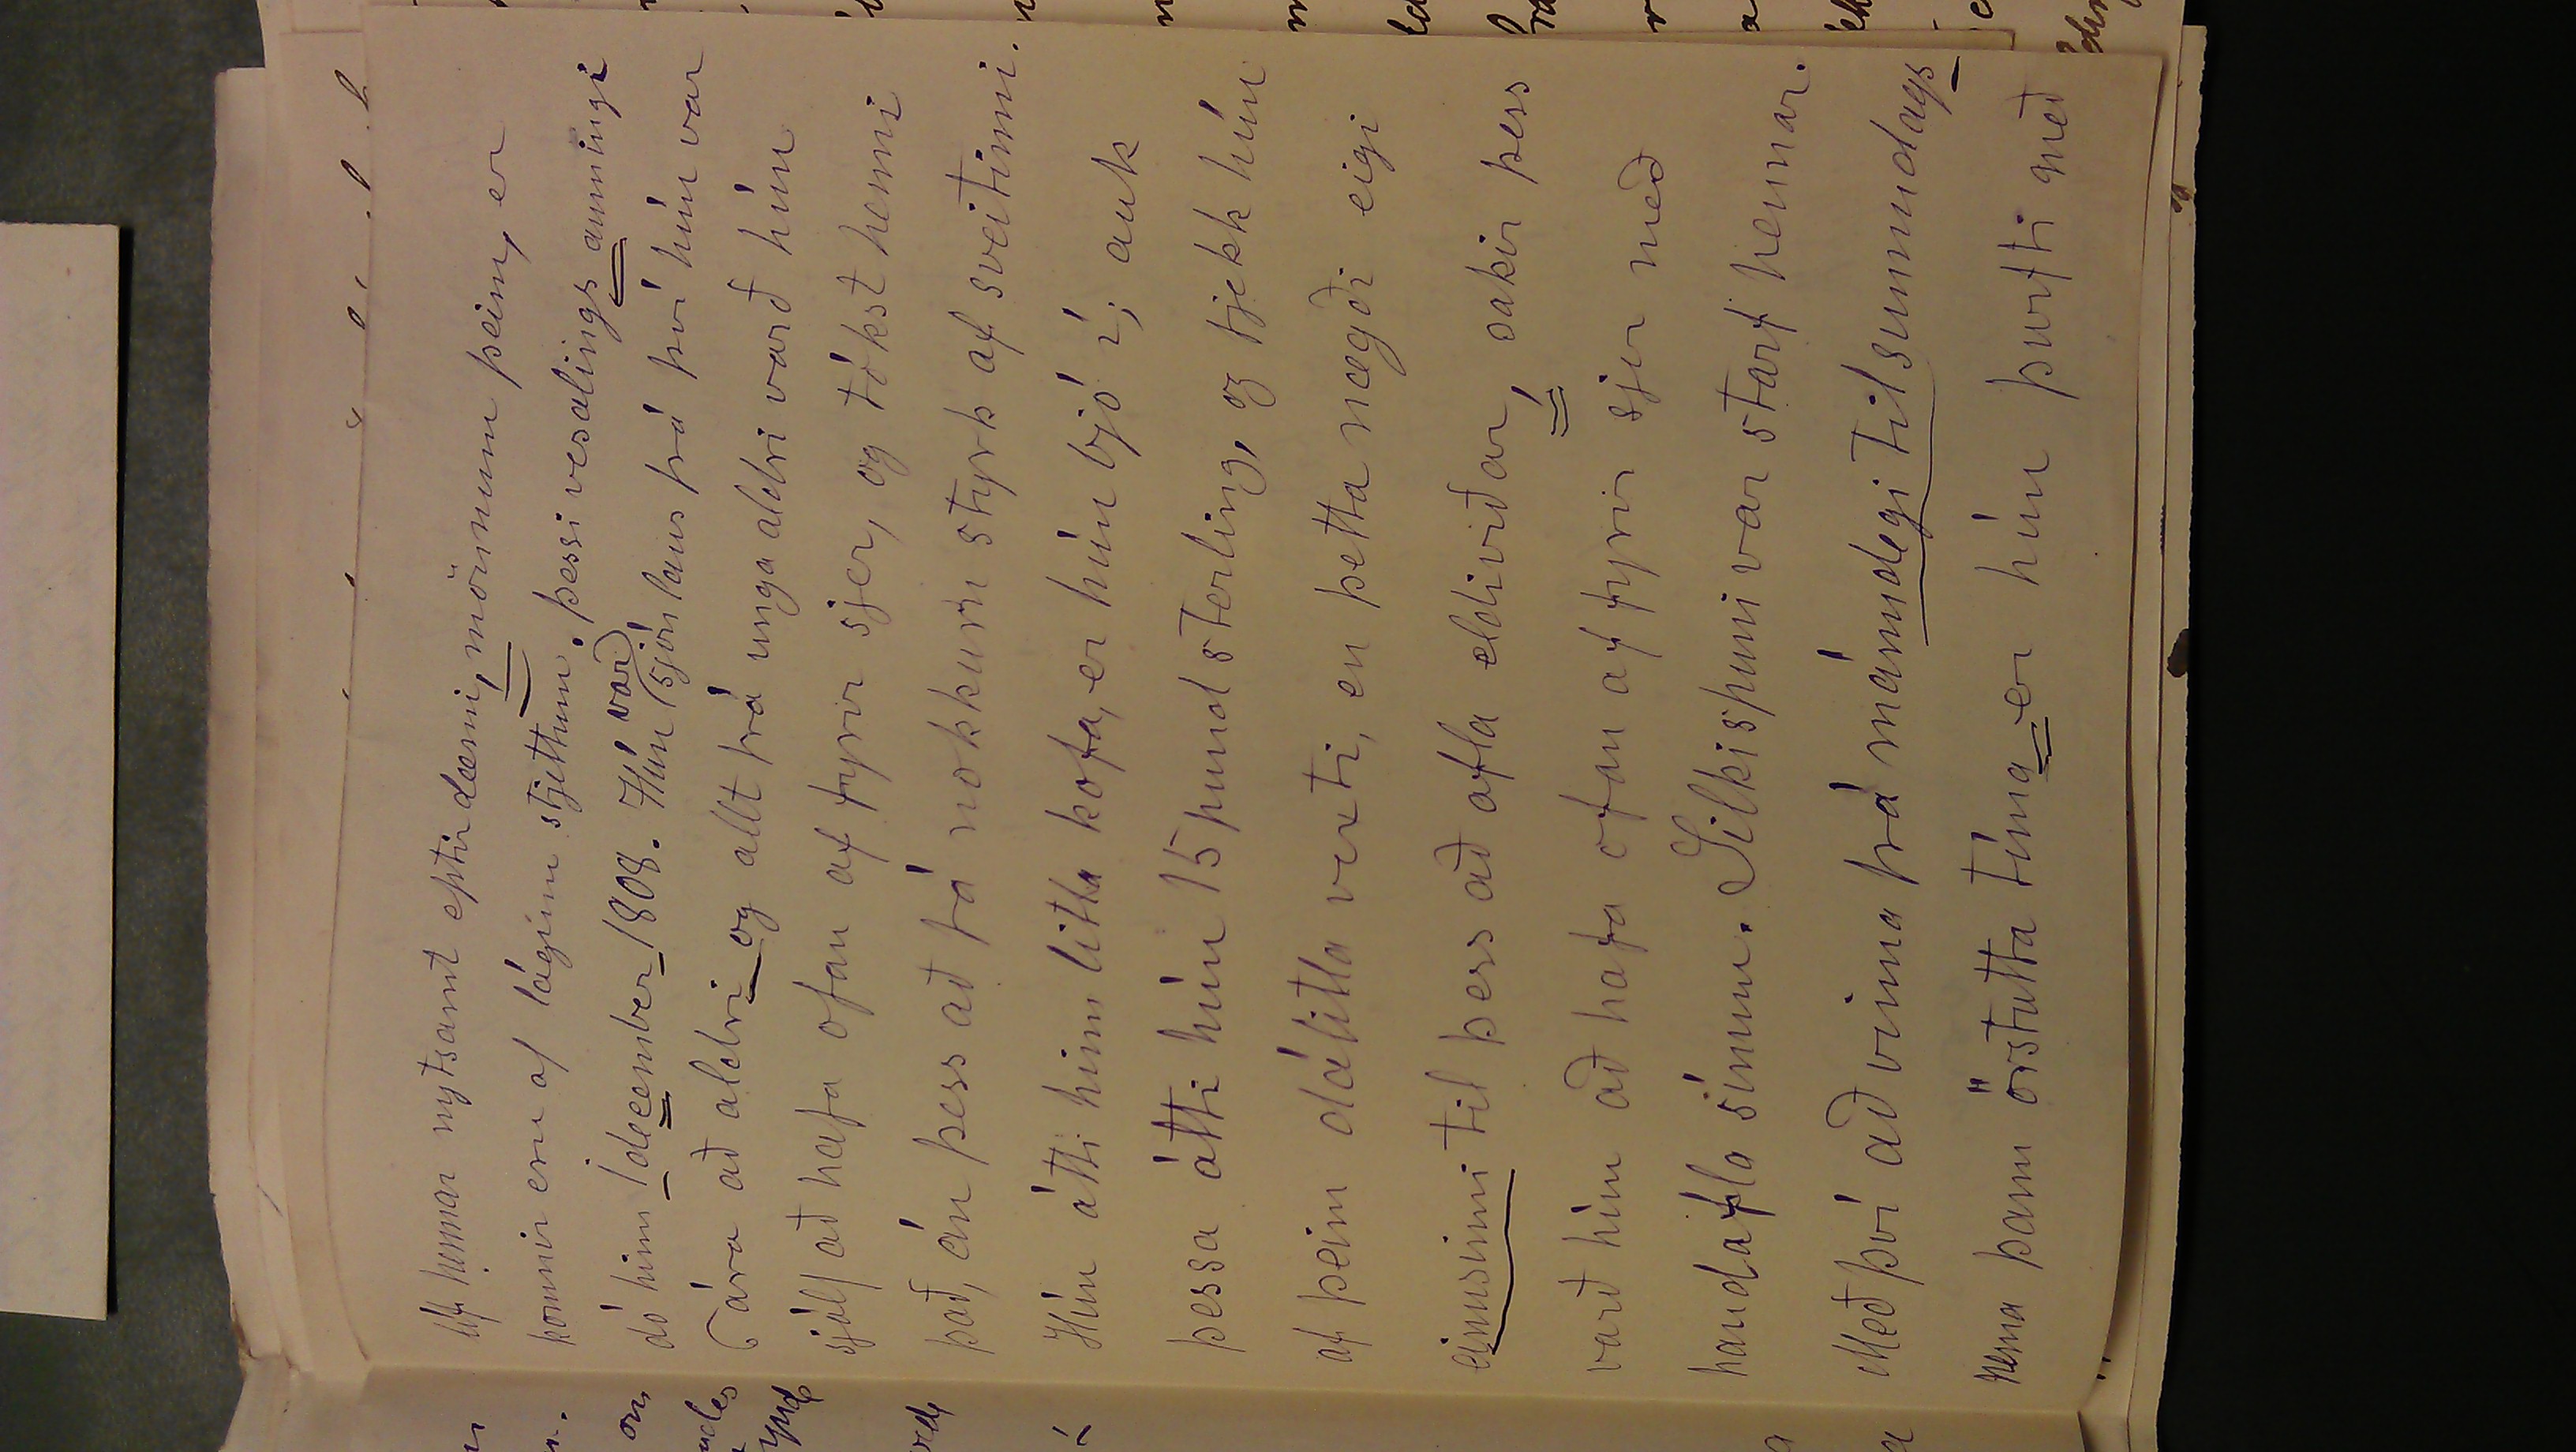 líf hennar nytsamt eptirdæmi, mönnum þeim, er
komnir eru af lágum stjettum. þessi vesalings aumingi
dó hinn 1 december 1808. Hún var sjónlaus frá því hún var
6 ára að aldri og allt frá unga aldri varð hún
sjálf að hafa ofan af fyrir sjer, og tókst henni
það, án þess að fá nokkurn styrk af sveitinni.
Hún átti hinn litla kofa, er hún bjó í; auk
þessa átti hún 15 pund sterling, og fjekk hún
af þeim dálitla vexti, en þetta nægði eigi
einusinni til þess að afla eldiviðar, sakir þess
varð hún að hafa ofan af fyrir sjer með
handafla sínum. Silkispuni var starf hennar.
Með því að vinna frá mánudegi til sunnudags
nema þann örstutta tíma er hún þurfti með